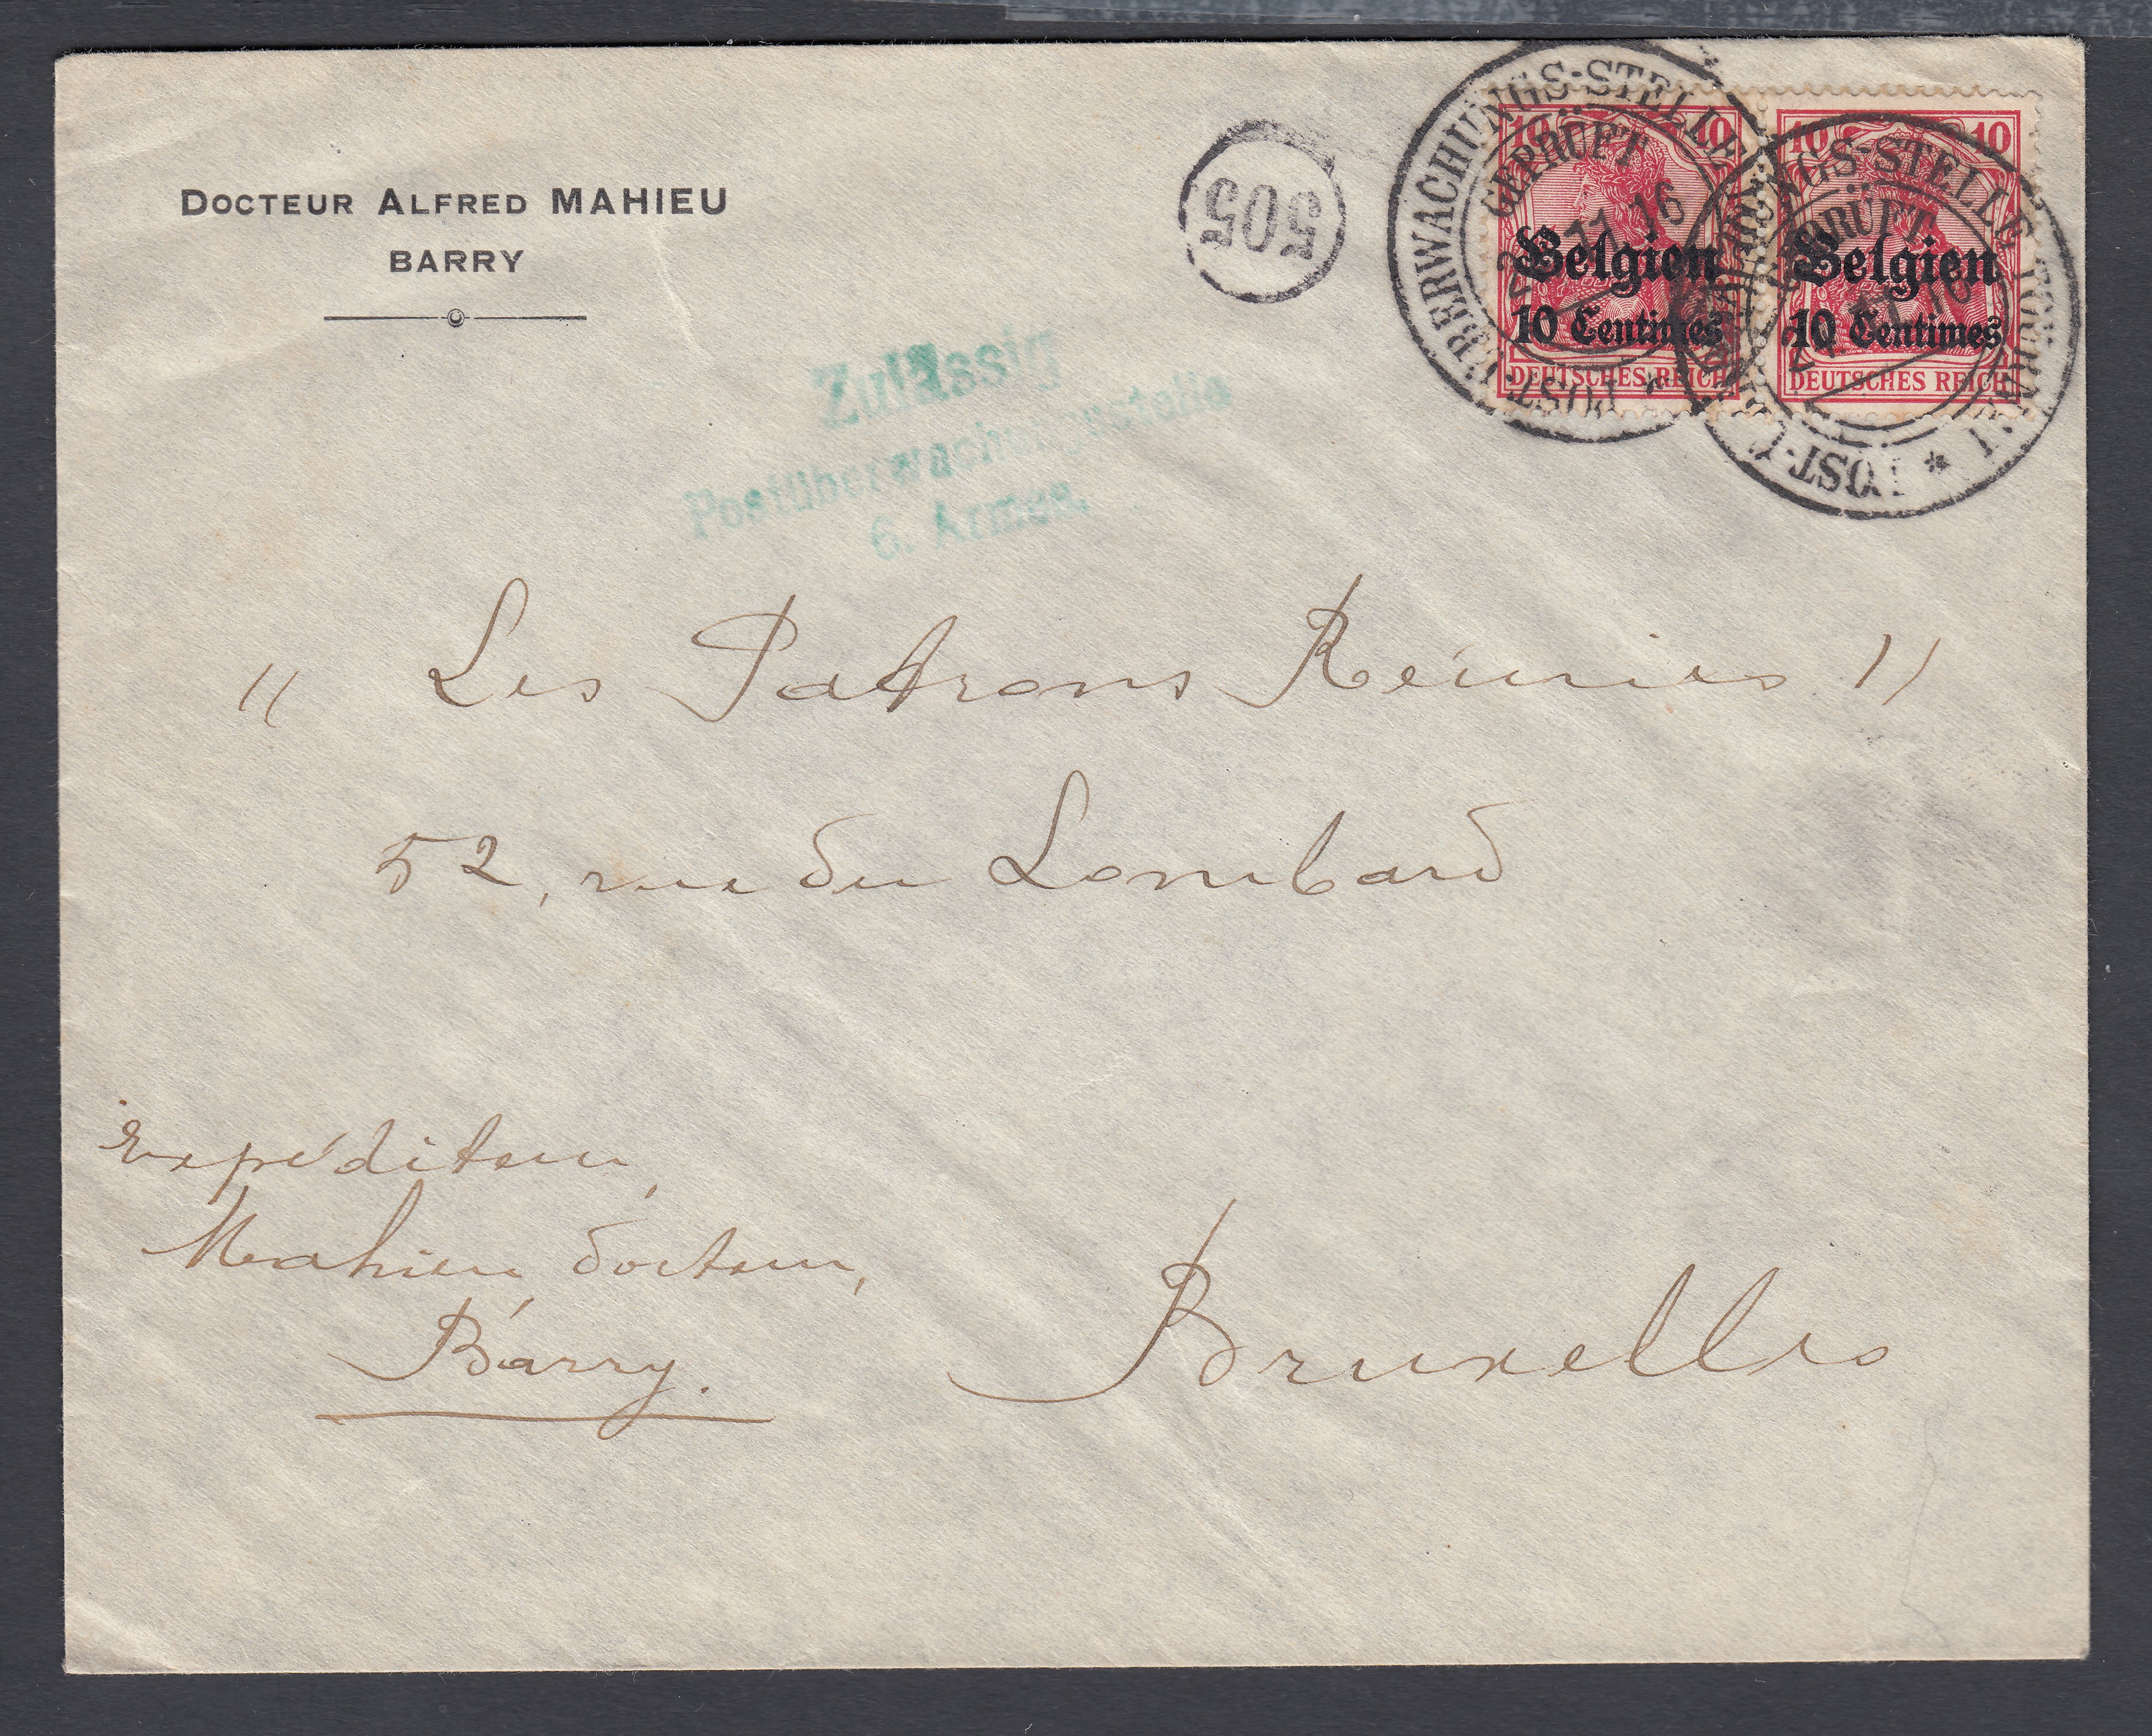 DOCTEUR ALFRED MAHIEU
BARRY
505
Zulässig
Postüberwachungsstelle
6. Armee.
POST-ÜBERWACHUNGS-STELLE
GEPRÜFT
11 16
10 10
Belgien
10 Centimes
DEUTSCHES REICH
POST-ÜBERWACHUNGS-STELLE TOURNAI *
GEPRÜFT
10 10
Belgien
10 Centimes
DEUTSCHES REICH
" Les Patrons Réunies "
52, rue du Lombard
Expéditeur,
Mahieu docteur,
Barry.
Bruxelles